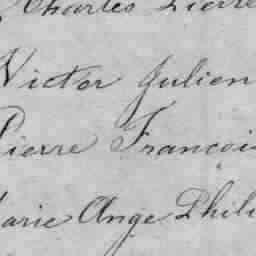 Charles Pierre
Victor Julien
Pierre Francois
Marie Ange Phili